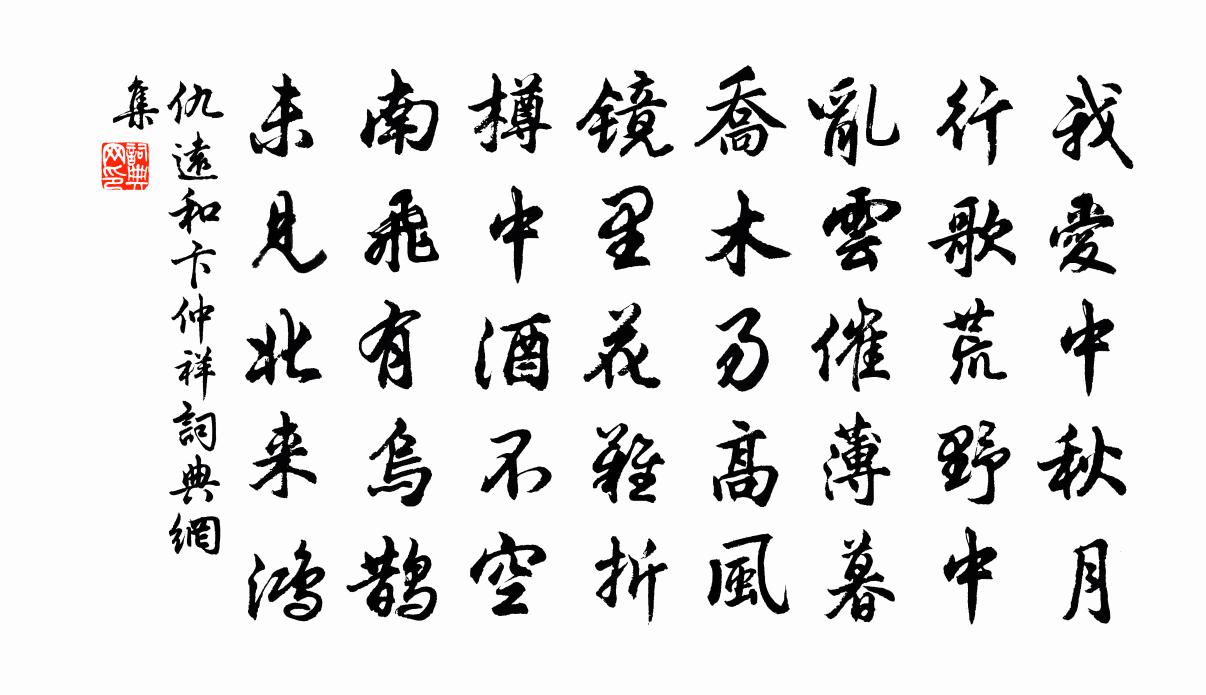 我愛中秋月
行歌荒野中
亂雲催薄暮
喬木易高風
镜里花難折
樽中酒不空
南飛有烏鹊
未見北来鸿
仇遠和卞仲祥詞典網
集
詞典
网印